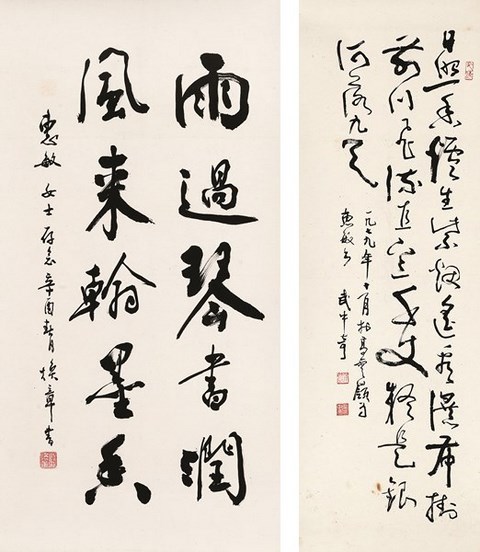 雨過琴書潤
風來翰墨香
惠敏女士存念辛酉春月煥章書
日照香爐生紫烟遙看瀑布掛
前川飛流直下三千尺疑是銀
河落九天
一九七九年十月
惠敏
武中奇